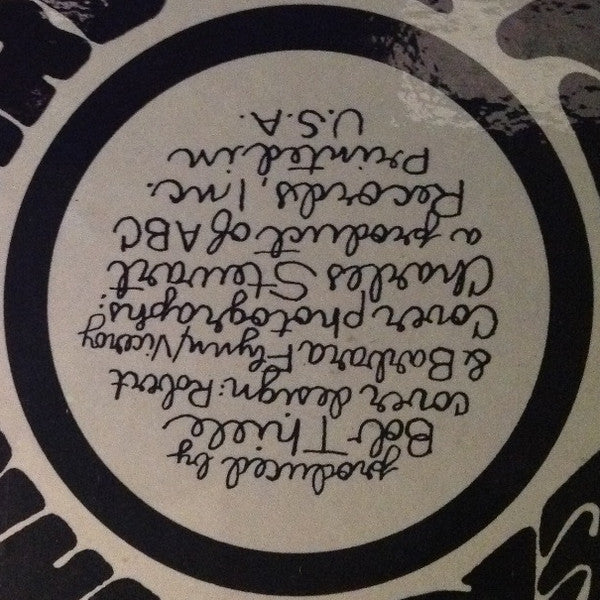 produced by
Bob Thiele
cover design: Robert
& Barbara Flynn/Viceroy
Cover photographs:
Charles Stewart
a product of ABC
Records, Inc.
Printed in
U.S.A.